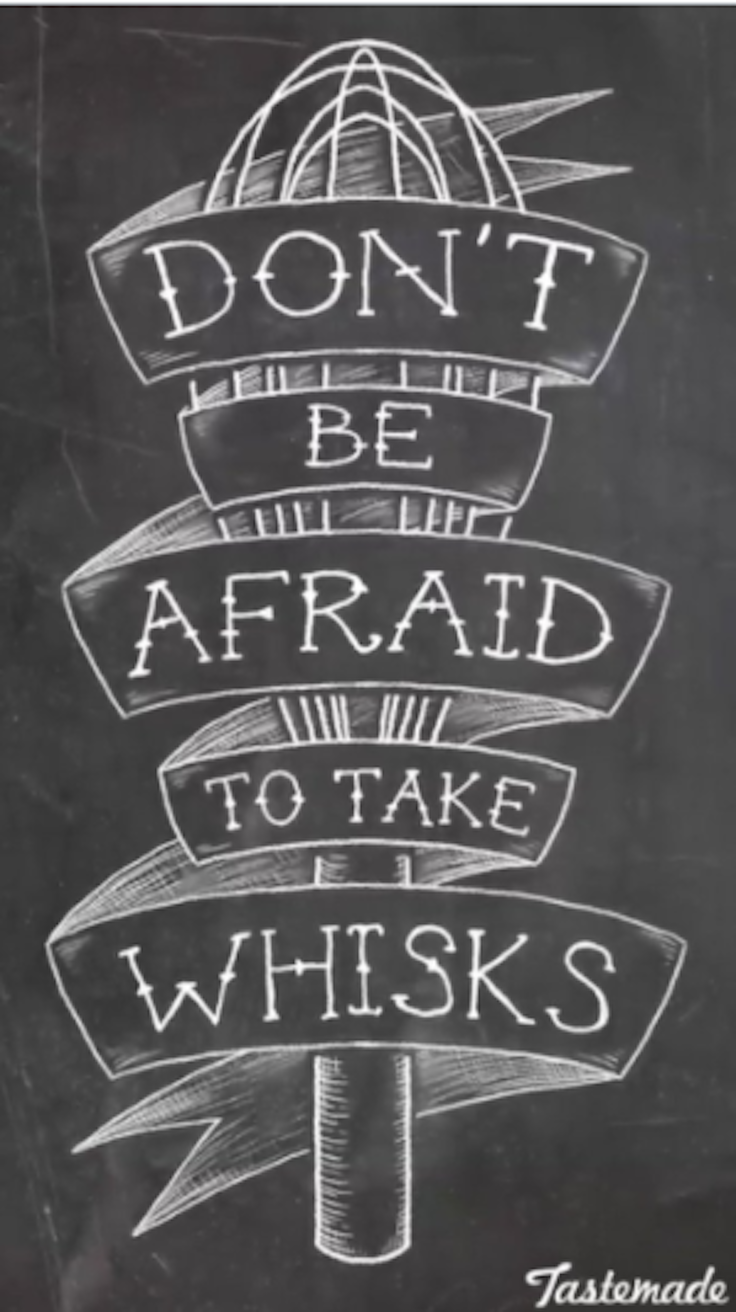 DON'T
BE
AFRAID
TO TAKE
WHISKS
Tastemade